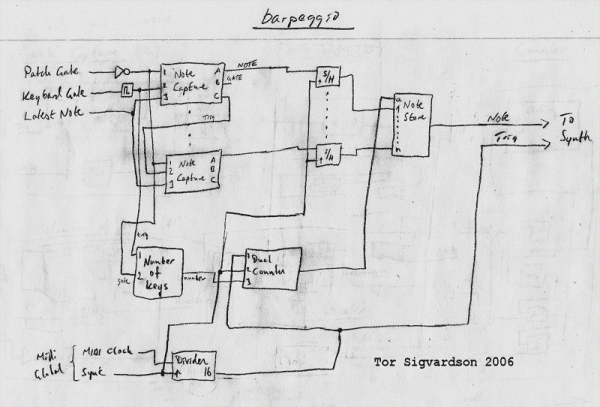 barpeggio
Patch Gate
Keyboard Gate
Latest Note
1 Note A
2 Capture B
3 C
NOTE
GATE
Trig
S/H
a Note
Store
n
Note
Trig
To
Synth
1 Note A
2 Capture B
3 C
S/H
trig
gate
1 Number
2 of
Keys
number
1 Dual
2 Counter
3
Midi
Global
MIDI Clock
Sync
Divider
16
Tor Sigvardson 2006